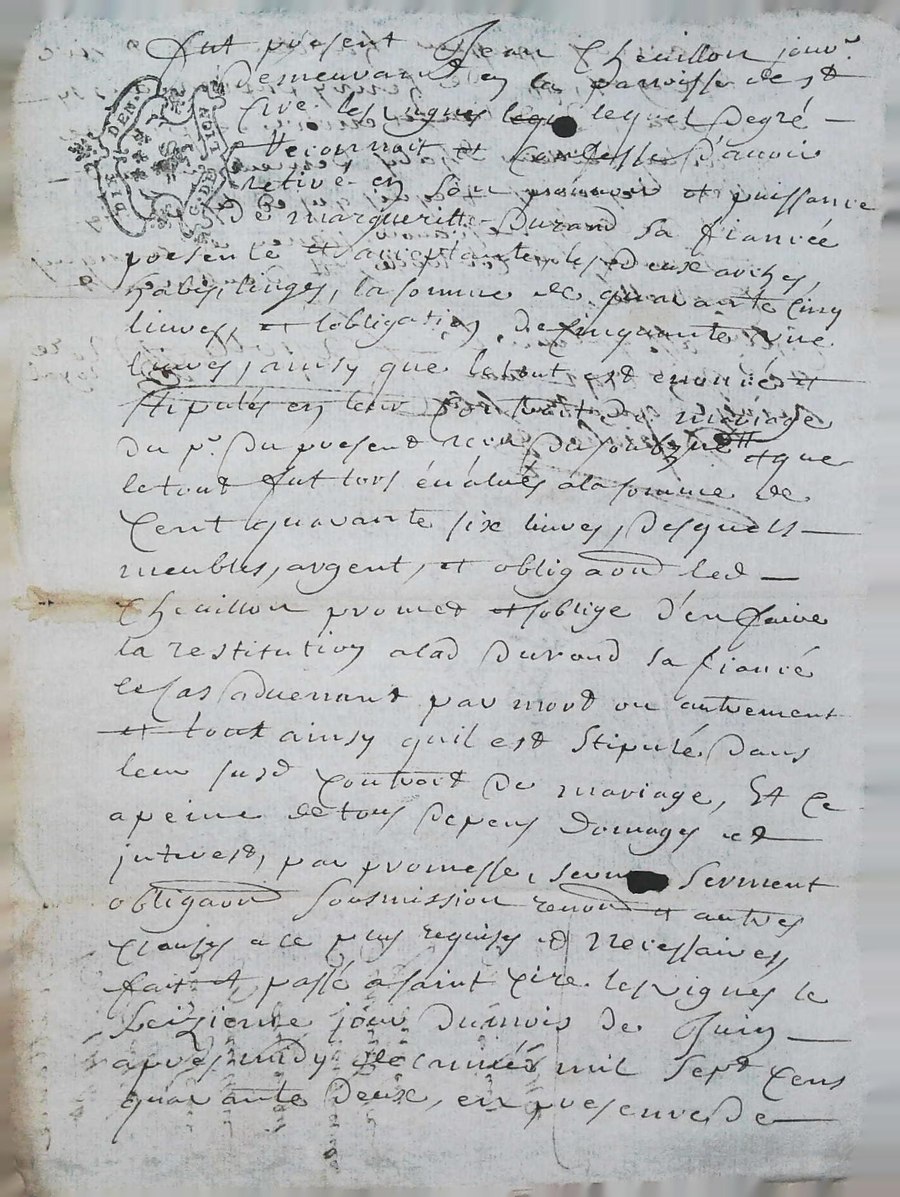 fut present Jean Cheuillon jour.
demeurant en la parroisse de st
Cire les vignes lequel degré
Reconnoit et Confesse d'auoir
retiré en son pouuoir et puissance
De margueritte Durand sa fiancée
presente et acceptante les deux arches,
habis, linges, la somme de quarante cinq
liures, et lobligation de Cinquante une
liures, ainsy que le tout est enoncé et
stipulés en leur Contract de mariage
du pr. du present receu du soubsigné et que
le tout fut lors éualués a la somme de
Cent quarante six liures, desquels
meubles, argent, et obligaon led
Cheuillon promet et soblige d'en faire
la restitution a lad Durand sa fiancé
le Cas aduenant par mort ou autrement
et tout ainsy quil est stipulé dans
leur susd Contract de mariage, Et Ce
a peine de tous depens domages et
jnterest, par promesse, serment
obligaon sousmission renond et autres
Clauses a ce plus requises et necessaires,
fait et passé a saint Cire les vignes le
seizieme jour du mois de Juin
apres midy mil sept Cens
quarante deux, en presence de
GEN
DE